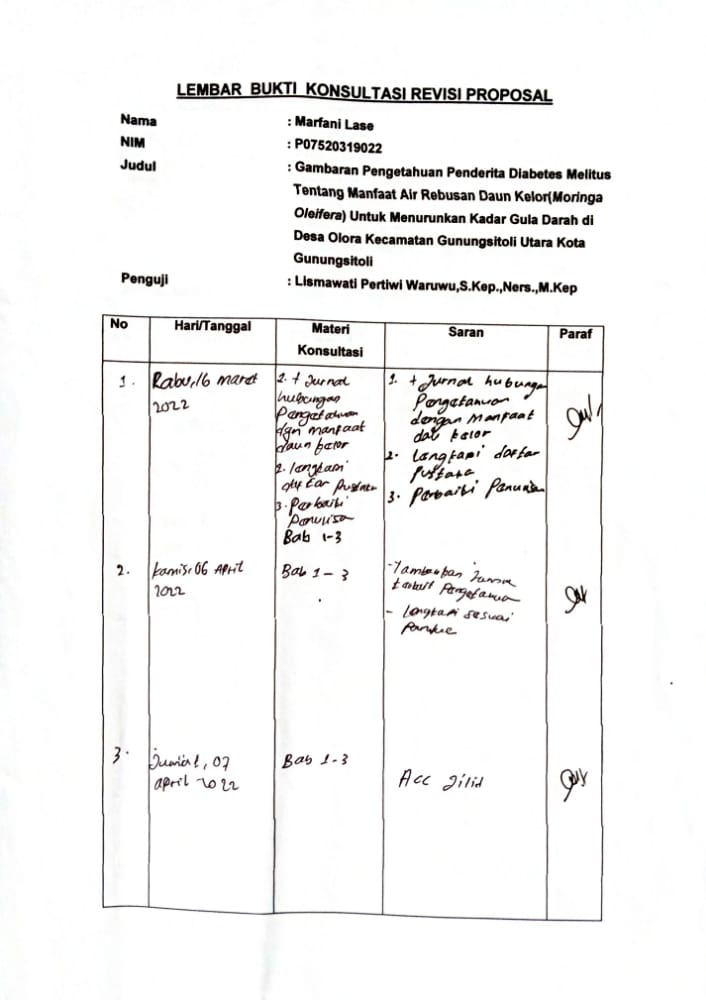 LEMBAR BUKTI KONSULTASI REVISI PROPOSAL
Nama : Marfani Lase
NIM : P07520319022
Judul : Gambaran Pengetahuan Penderita Diabetes Melitus
Tentang Manfaat Air Rebusan Daun Kelor(Moringa
Oleifera) Untuk Menurunkan Kadar Gula Darah di
Desa Olora Kecamatan Gunungsitoli Utara Kota
Gunungsitoli
Penguji : Lismawati Pertiwi Waruwu,S.Kep.,Ners.,M.Kep
No Hari/Tanggal Materi Konsultasi Saran Paraf
1. Rabu, 16 maret
2022
+ Jurnal
hubungan
Pengetahuan
dgn manfaat
daun kelor
2. langkapi
Pustaka
3. Perbaiki
Bab 1-3
1. + Jurnal hubungan
Pengetahuan
dengan manfaat
kelor
2. langkapi daftar
Pustaka
3. Perbaiki
2. Kamis, 06 April
2022
Bab 1-3
- Tambahkan
Pengetahuan
- langkapi sesuai
3.
07
april 2022
Bab 1-3
Acc Jilid